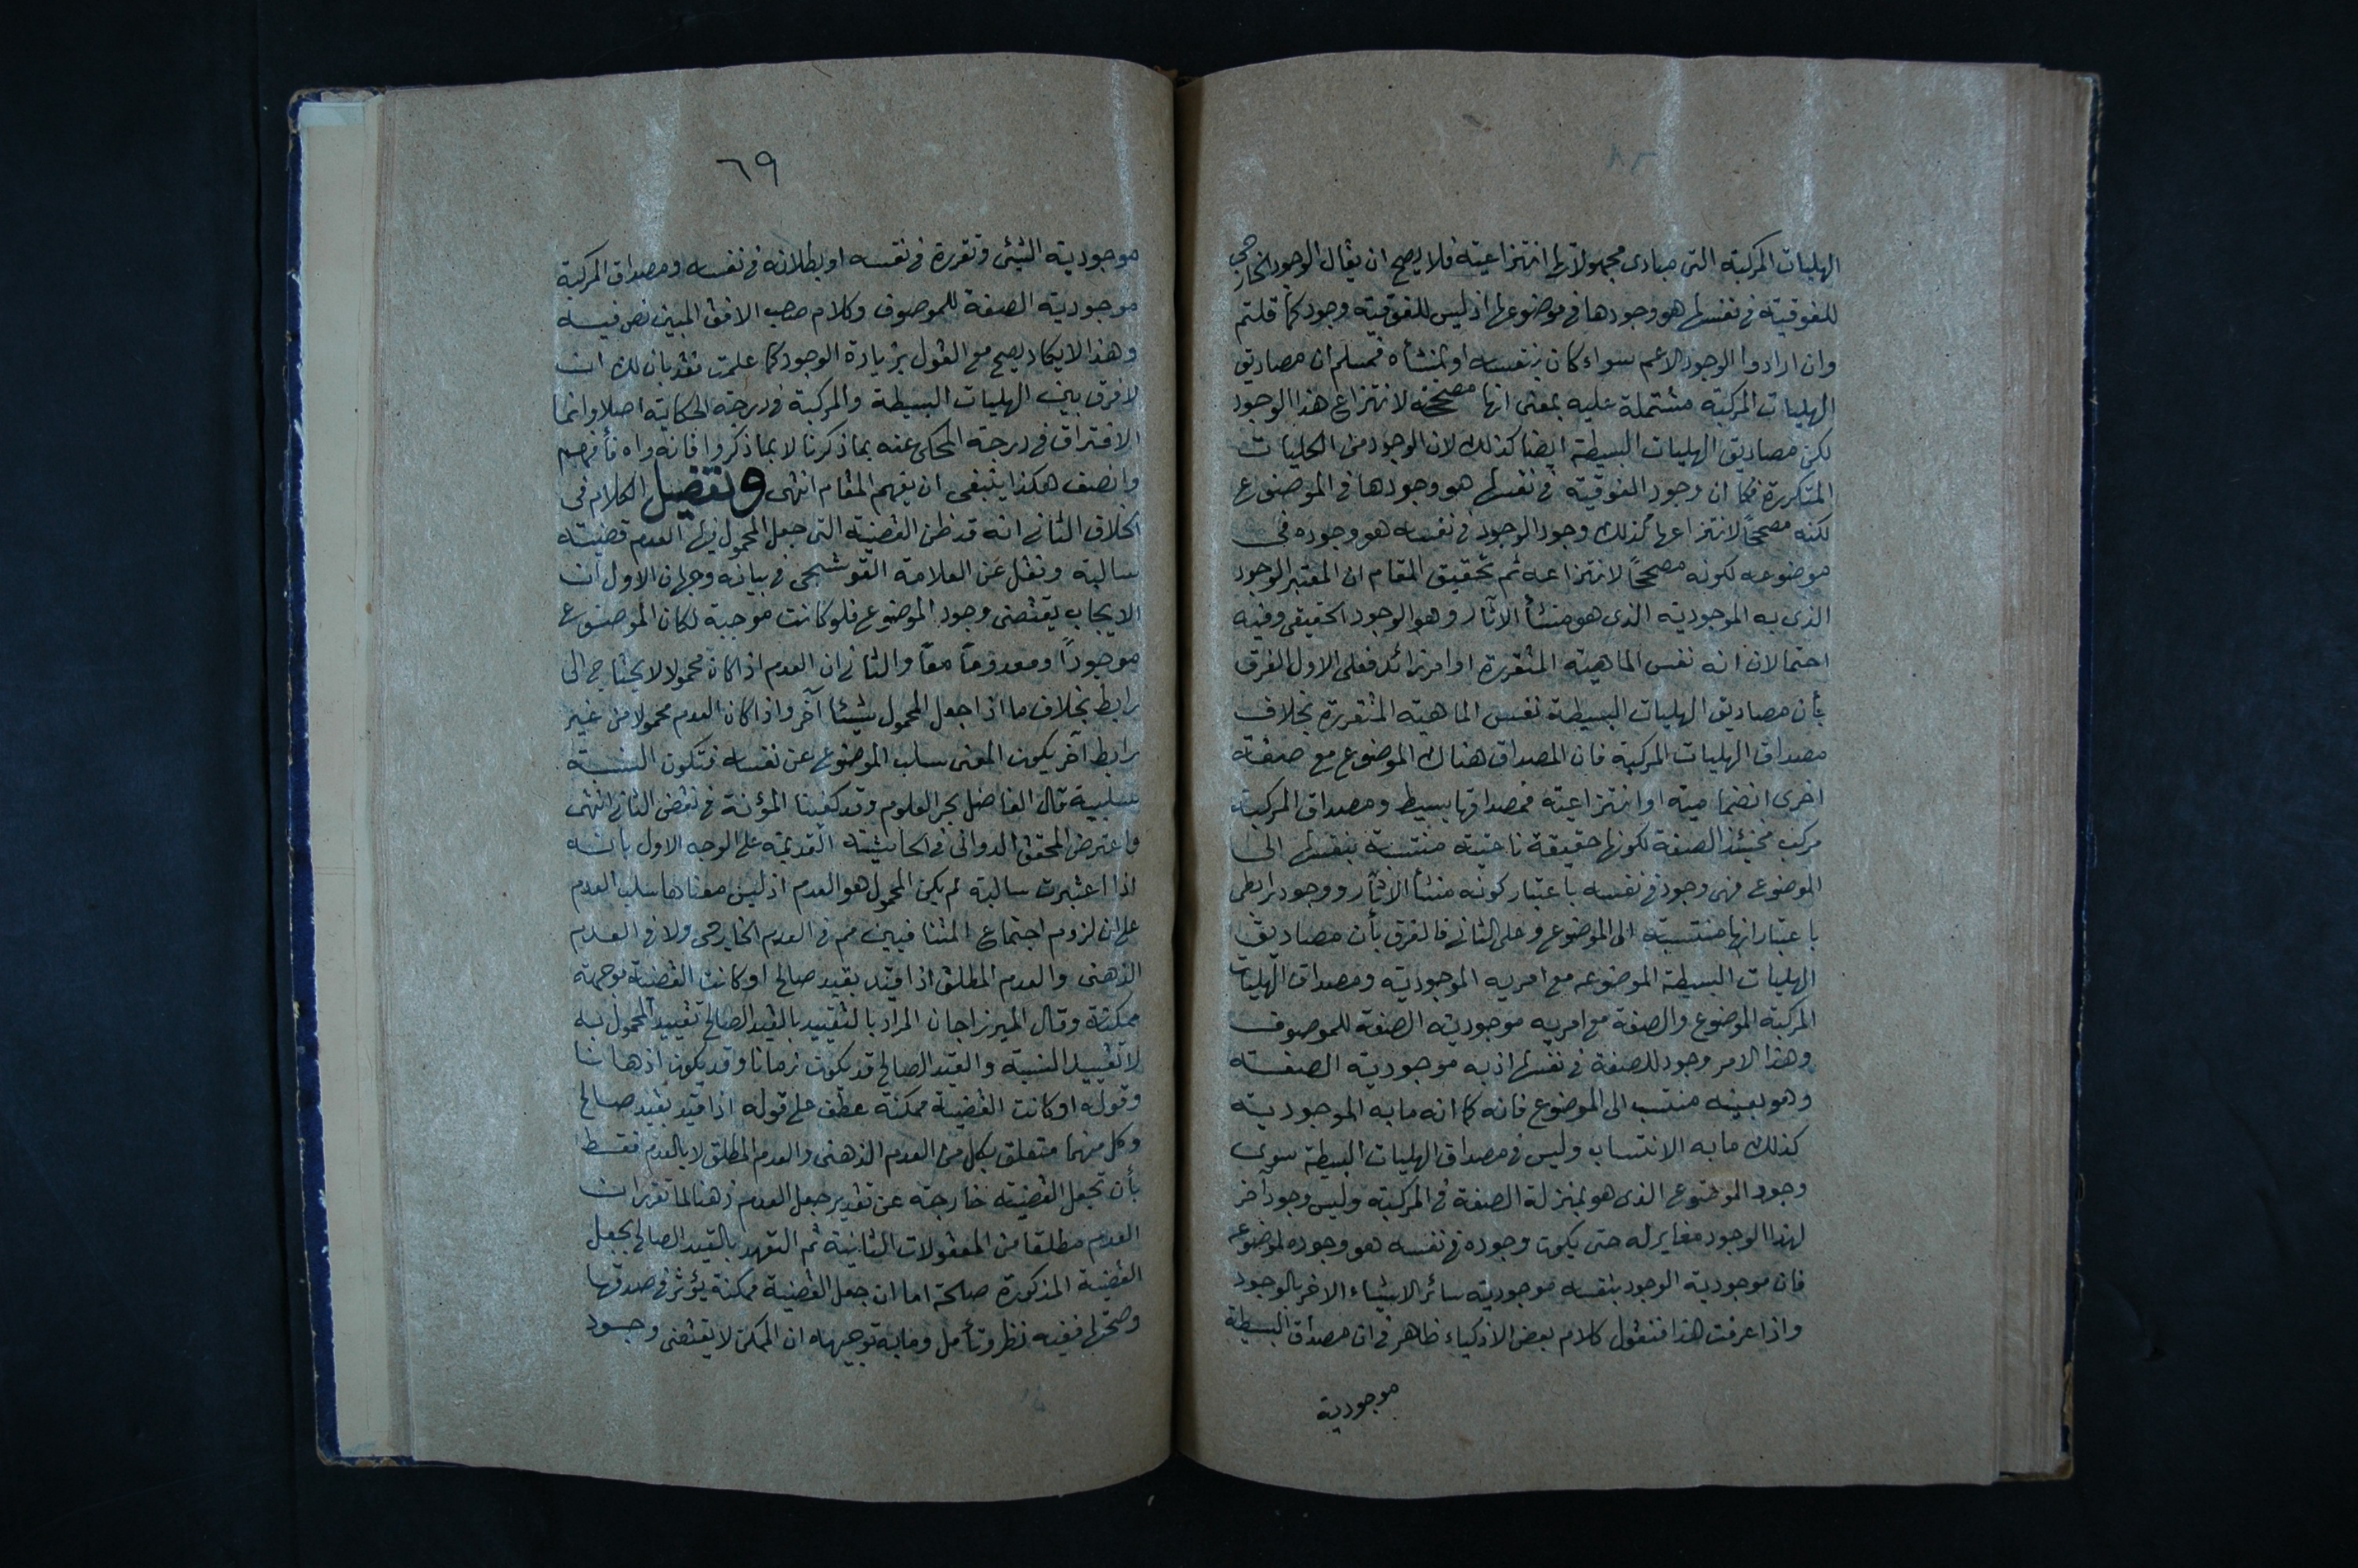 الهليات المركبة التى مبادى محمولاتها انتزاعية فلا يصح ان يقال الوجود الخارجى
للفوقية فى نفسها هو وجودها فى موضوعها اذ ليس للفوقية وجود كما قلتم
وان ارادوا الوجود الاعم سواء كان بنفسه او بمنشأه فمسلم ان مصاديق
الهليات المركبة مشتملة عليه بمعنى انها مصححة لانتزاع هذا الوجود
لكن مصاديق الهليات البسيطة ايضا كذلك لان الوجود من الكليات
المتكررة فكما ان وجود الفوقية فى نفسها هو وجودها فى الموضوع
لكنه مصححاً لانتزاعها كذلك وجود الوجود فى نفسه هو وجوده فى
موضوعه لكونه مصححاً لانتزاعه ثم تحقيق المقام ان المعتبر الوجود
الذى به الموجودية الذى هو منشأ الآثار وهو الوجود الحقيقى وفيه
احتمالان انه نفس الماهية المتقررة او امر زائد فعلى الاول الفرق
بأن مصاديق الهليات البسيطة نفس الماهية المتقررة بخلاف
مصداق الهليات المركبة فان المصداق هناك الموضوع مع صفة
اخرى انضمامية او انتزاعية فمصداقها بسيط ومصداق المركبة
مركب فحينئذ الصفة لكونها حقيقة ناعتية منتسبة بنفسها الى
الموضوع فهى وجود فى نفسه باعتبار كونه منشأ الآثار ووجود رابطى
باعتبار انها منتسبة الى الموضوع وعلى الثانى فالفرق بأن مصاديق
الهليات البسيطة الموضوع مع امر به الموجودية ومصداق الهليات
المركبة الموضوع والصفة مع امر به موجودية الصفة للموصوف
وهذا الامر وجود للصفة فى نفسها اذ به موجودية الصفة
وهو بعينه منتسب الى الموضوع فانه كما انه ما به الموجودية
كذلك ما به الانتساب وليس فى مصداق الهليات البسيطة سوى
وجود الموضوع الذى هو بمنزلة الصفة فى المركبة وليس وجود آخر
لهذا الوجود مغاير له حتى يكون وجوده فى نفسه هو وجوده لموضوعه
فان موجودية الوجود بنفسه موجودية سائر الاشياء الاخر بالوجود
واذا عرفت هذا فنقول كلام بعض الاذكياء ظاهر فى ان مصداق البسيطة
موجودية
٦٩
موجودية الشيئ وتقرره فى نفسه او بطلانه فى نفسه ومصداق المركبة
موجودية الصفة للموصوف وكلام صاحب الافق المبين نص فيه
وهذا لا يكاد يصح مع القول بزيادة الوجود كما علمت فقد بان لك ان
لا فرق بين الهليات البسيطة والمركبة فى درجة الحكاية اصلا وانما
الافتراق فى درجة المحكى عنه بما ذكرنا لا بما ذكروا فانه واه فأفهم
وانصف هكذا ينبغى ان يفهم المقام انتهى وتفصيل الكلام فى
الخلاف الثانى انه قد ظن القضية التى جعل المحمول فيها العدم قضية
سالبة ونقل عن العلامة القوشجى فى بيانه وجهان الاول ان
الايجاب يقتضى وجود الموضوع فلو كانت موجبة لكان الموضوع
موجوداً ومعدوماً معاً والثانى ان العدم اذا كان محمولا لا يحتاج الى
رابط بخلاف ما اذا جعل المحمول شيئا آخر واذا كان العدم محمولا من غير
رابط آخر يكون المعنى سلب الموضوع عن نفسه فتكون النسبة
سلبية قال الفاضل بحر العلوم وقد كفينا المؤنة فى نقض الثانى انتهى
واعترض المحقق الدوانى فى الحاشية القديمة على الوجه الاول بانه
اذا اعتبرت سالبة لم يكن المحمول هو العدم اذ ليس معناها سلب العدم
على ان لزوم اجتماع المتنافيين مم فى العدم الخارجى ولا فى العدم
الذهنى والعدم المطلق اذا قيد بقيد صالح او كانت القضية موجهة
ممكنة وقال الميرزاجان المراد بالتقييد بالقيد الصالح تقييد المحمول به
لا تقييد النسبة والقيد الصالح قد يكون زمانا وقد يكون اذهانا
وقوله او كانت القضية ممكنة عطف على قوله اذا قيد بقيد صالح
وكل منهما متعلق بكل من العدم الذهنى والعدم المطلق لا بالعدم فقط
بأن تجعل القضية خارجة عن تقدير جعل العدم ذهنا لما تقرر ان
العدم مطلقا من المعقولات الثانية ثم التعهد بالقيد الصالح بجعل
القضية المذكورة صالحة اما ان جعل القضية ممكنة يؤثر فى صدقها
وصحتها ففيه نظر وتأمل وغاية توجيهه ان الممكن لا يقتضى وجود